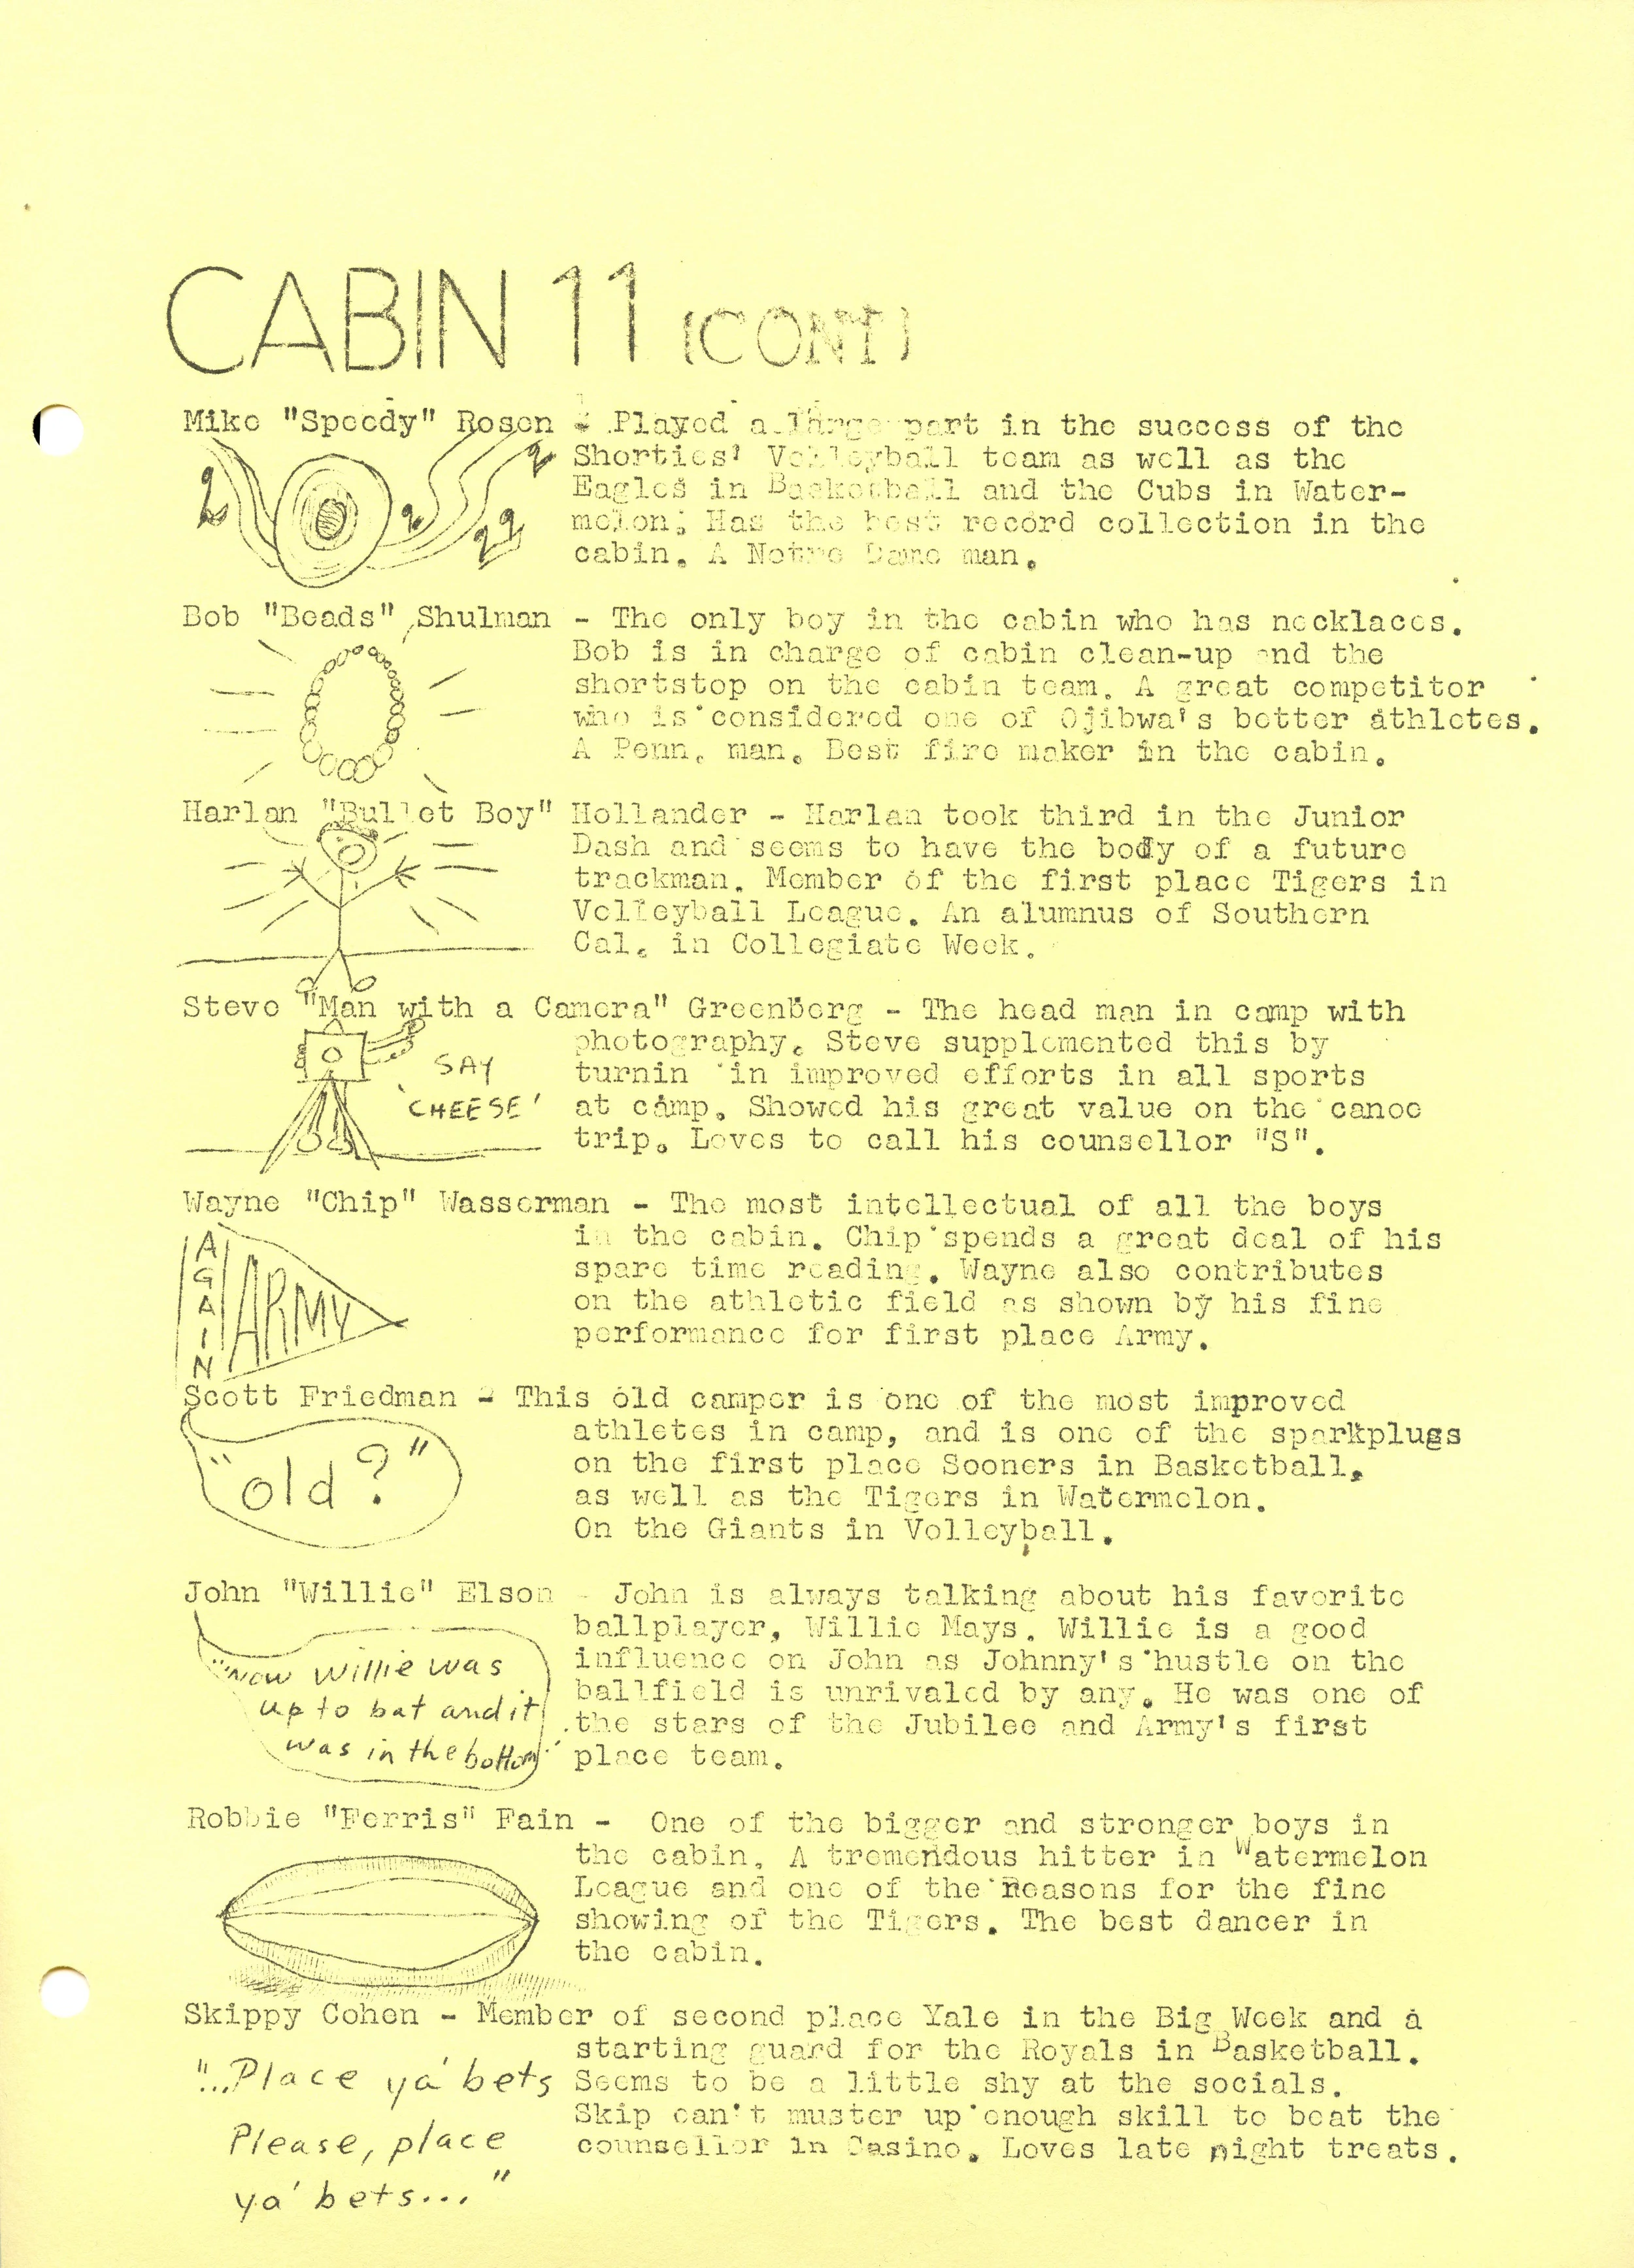 CABIN 11 (CONT)
Mike "Speedy" Rosen - Played a large part in the success of the
Shorties' Volleyball team as well as the
Eagles in Basketball and the Cubs in Water-
melon. Has the best record collection in the
cabin. A Notre Dame man.
Bob "Beads" Shulman - The only boy in the cabin who has necklaces.
Bob is in charge of cabin clean-up and the
shortstop on the cabin team. A great competitor
who is considered one of Ojibwa's better athletes.
A Penn. man. Best fire maker in the cabin.
Harlan "Bullet Boy" Hollander - Harlan took third in the Junior
Dash and seems to have the body of a future
trackman. Member of the first place Tigers in
Volleyball League. An alumnus of Southern
Cal. in Collegiate Week.
Steve "Man with a Camera" Greenberg - The head man in camp with
photography. Steve supplemented this by
turnin in improved efforts in all sports
at camp. Showed his great value on the canoe
trip. Loves to call his counsellor "S".
SAY
'CHEESE'
Wayne "Chip" Wasserman - The most intellectual of all the boys
in the cabin. Chip spends a great deal of his
spare time reading. Wayne also contributes
on the athletic field as shown by his fine
performance for first place Army.
AGAIN
ARMY
Scott Friedman - This old camper is one of the most improved
athletes in camp, and is one of the sparkplugs
on the first place Sooners in Basketball,
as well as the Tigers in Watermelon.
On the Giants in Volleyball.
"old?"
John "Willie" Elson - John is always talking about his favorite
ballplayer, Willie Mays. Willie is a good
influence on John as Johnny's hustle on the
ballfield is unrivaled by any. He was one of
the stars of the Jubilee and Army's first
place team.
"Now Willie was
up to bat and it
was in the bottom"
Robbie "Ferris" Fain - One of the bigger and stronger boys in
the cabin. A tremendous hitter in Watermelon
League and one of the Reasons for the fine
showing of the Tigers. The best dancer in
the cabin.
Skippy Cohen - Member of second place Yale in the Big Week and a
starting guard for the Royals in Basketball.
Seems to be a little shy at the socials.
Skip can't muster up enough skill to beat the
counsellor in Casino. Loves late night treats.
"...Place ya' bets
Please, place
ya' bets..."